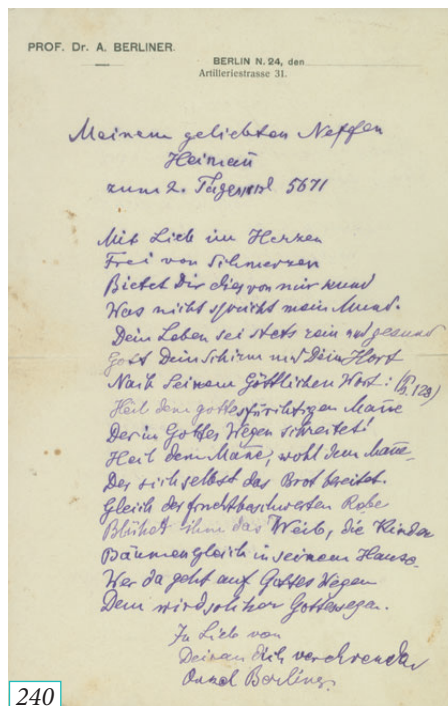 PROF. Dr. A. BERLINER.
BERLIN N. 24, den
Artilleriestrasse 31.
Meinem geliebten Neffen
Heiman
zum 2. 5671
Mit Lieb im Herzen
Frei von Schmerzen
Bietet Dir dies von mir kund
Was nicht spricht mein Mund.
Dein Leben sei stets rein und gesund
Gott Dein Schirm und Dein Hort
Nach Seinem Göttlichen Wort: (Ps. 128)
Heil dem gottesfürchtigen Mañe
Der in Gottes Wegen schreitet!
Heil dem Mañe, wohl dem Mañe
Der sich selbst das Brot bereitet.
Gleich der fruchtbeschwerten Rebe
Blühet ihm das Weib, die Kinder
Bäumen gleich in seinem Hause.
Wer da geht auf Gottes Wegen
Dem wird solcher Gottessegen.
In Lieb von
Deinem Dich verehrenden
Onkel Berliner
240